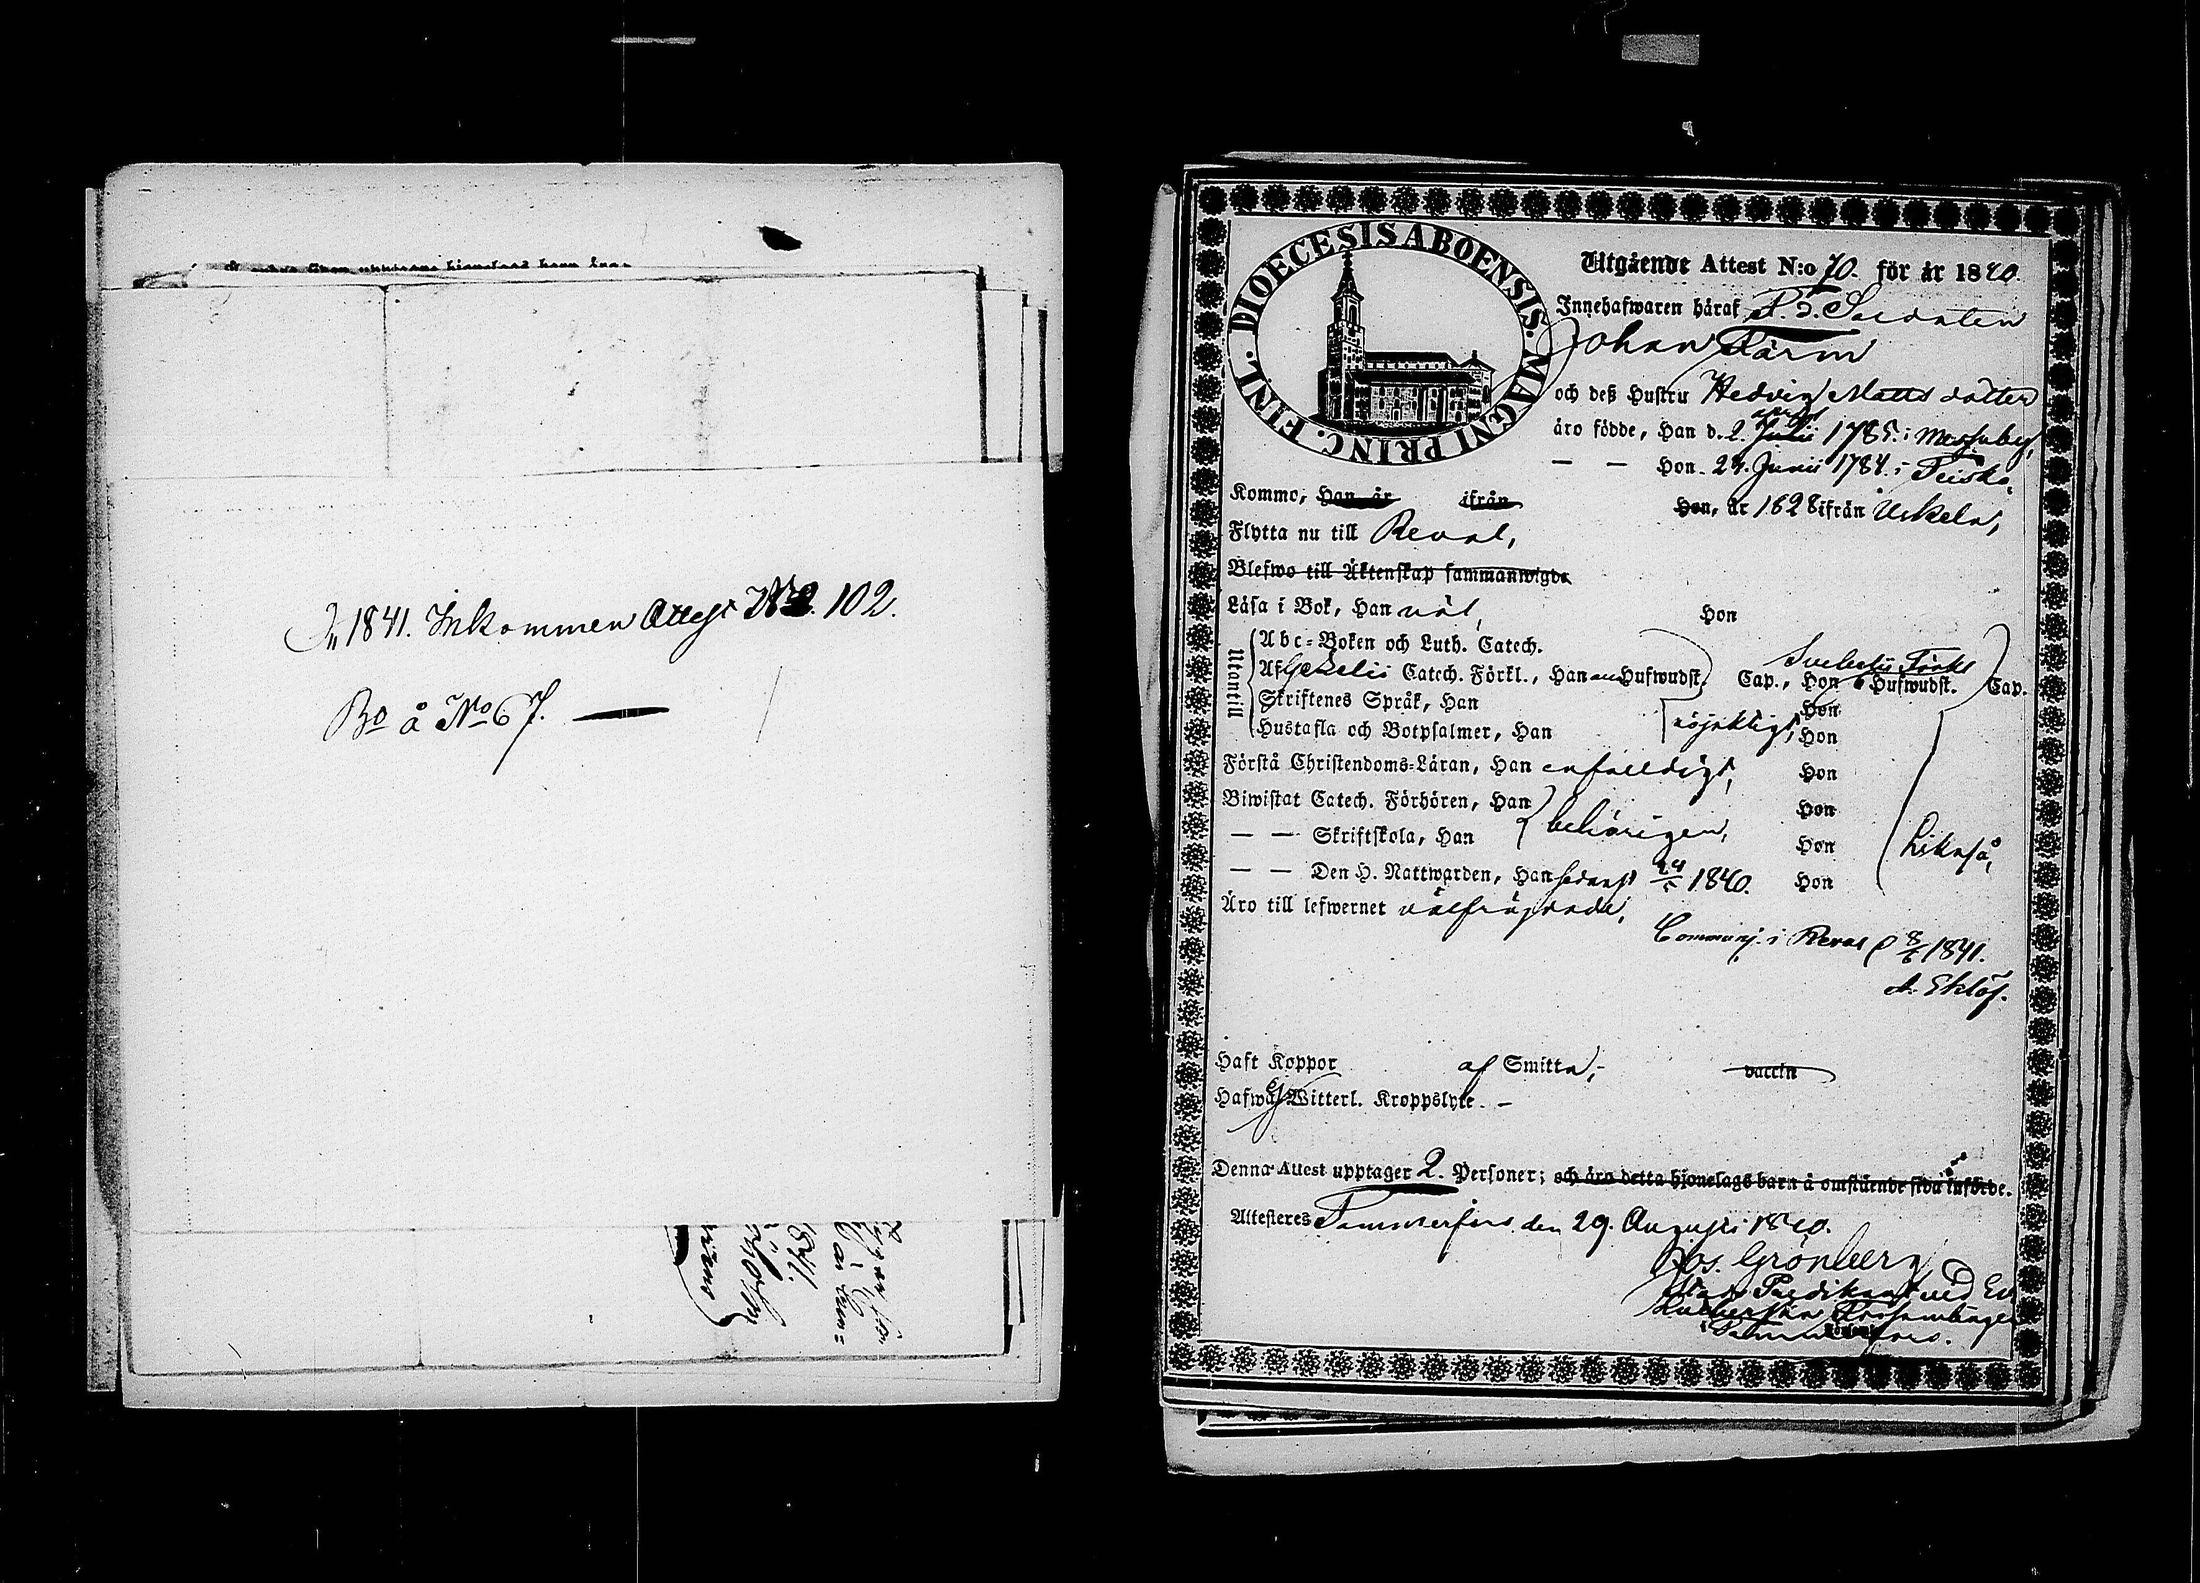 In 1841. Inkommen Attest No. 102.
Bo å No 67.
1841.
FINL. DIOECESIS ABOENSIS. MAGNI PRINC.
Utgående Attest N:o 70. för år 1840.
Innehafwaren häraf F. d. Soldaten
Johan Färm
och deß Hustru Hedvig Matts dotter
äro födde, Han d. 2. Julii 1785. i Messuby,
— — Hon. 24. Junii 1784. i
Kommo, Han år ifrån Hon, år 1828 ifrån Uskela,
Flytta nu till Reval,
Blefwo till Äktenskap sammanwigde
Läsa i Bok, Han väl, Hon
Utantill
Abc-Boken och Luth. Catech.
Af Gezelii Catech. Förkl., Han Hufwudst. Cap., Hon Svebelii Förkl Hufwudst. Cap.
Skriftenes Språk, Han Hon
Hustafla och Botpsalmer, Han nöjaktigt, Hon
Förstå Christendoms-Läran, Han enfaldigt, Hon
Biwistat Catech. Förhören, Han behörigen, Hon
— — Skriftskola, Han Hon Likaså,
— — Den H. Nattwarden, Han sednast 24/5 1840. Hon
Äro till lefwernet välfrägdade,
Communj. i Reval d 8/6 1841.
A. Eklöf.
Haft Koppor af Smitta, vaccin
Hafwa Ej Witterl. Kroppslyte. —
Denna Attest upptager 2. Personer; och äro detta hjonelags barn å omstående sida införde.
Attesteres Tammerfors den 29. Augusti 1840.
Jos. Grönberg
Predikant ved Ev.
Lutherska Församlingen
i Tammerfors.